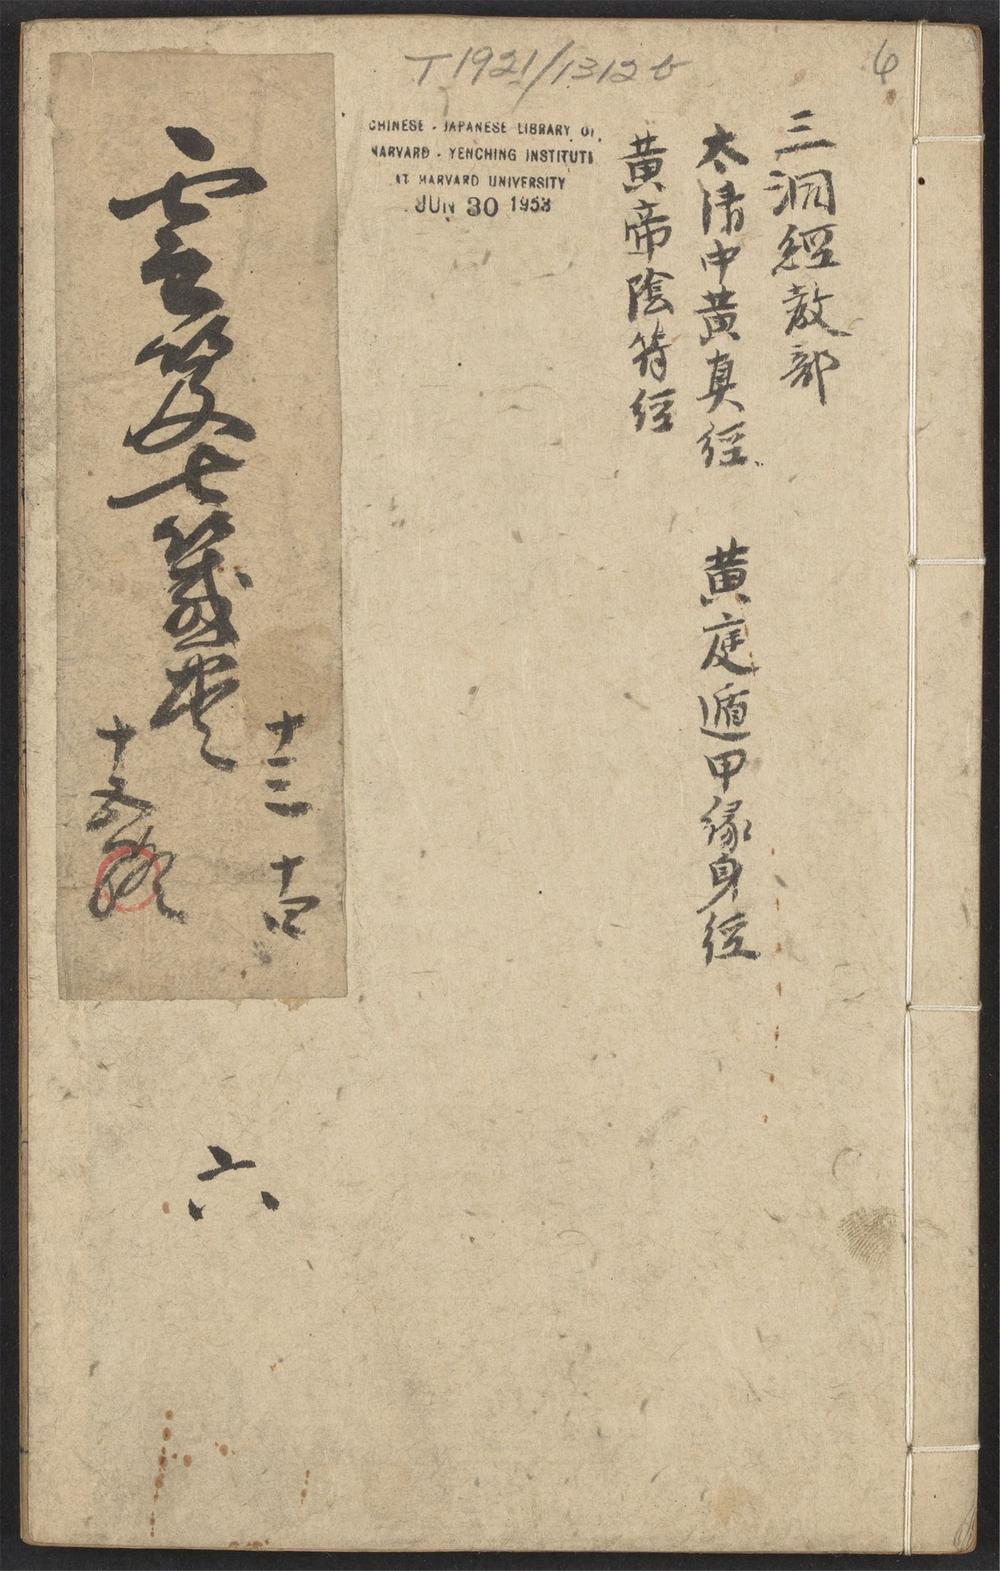 T1921/1312b
6
CHINESE - JAPANESE LIBRARY OF
HARVARD - YENCHING INSTITUTE
AT HARVARD UNIVERSITY
JUN 30 1953
三洞經教部
太清中黃真經 黃庭遁甲緣身經
黃帝陰符經
雲笈七籤
十三 十四
十五
六